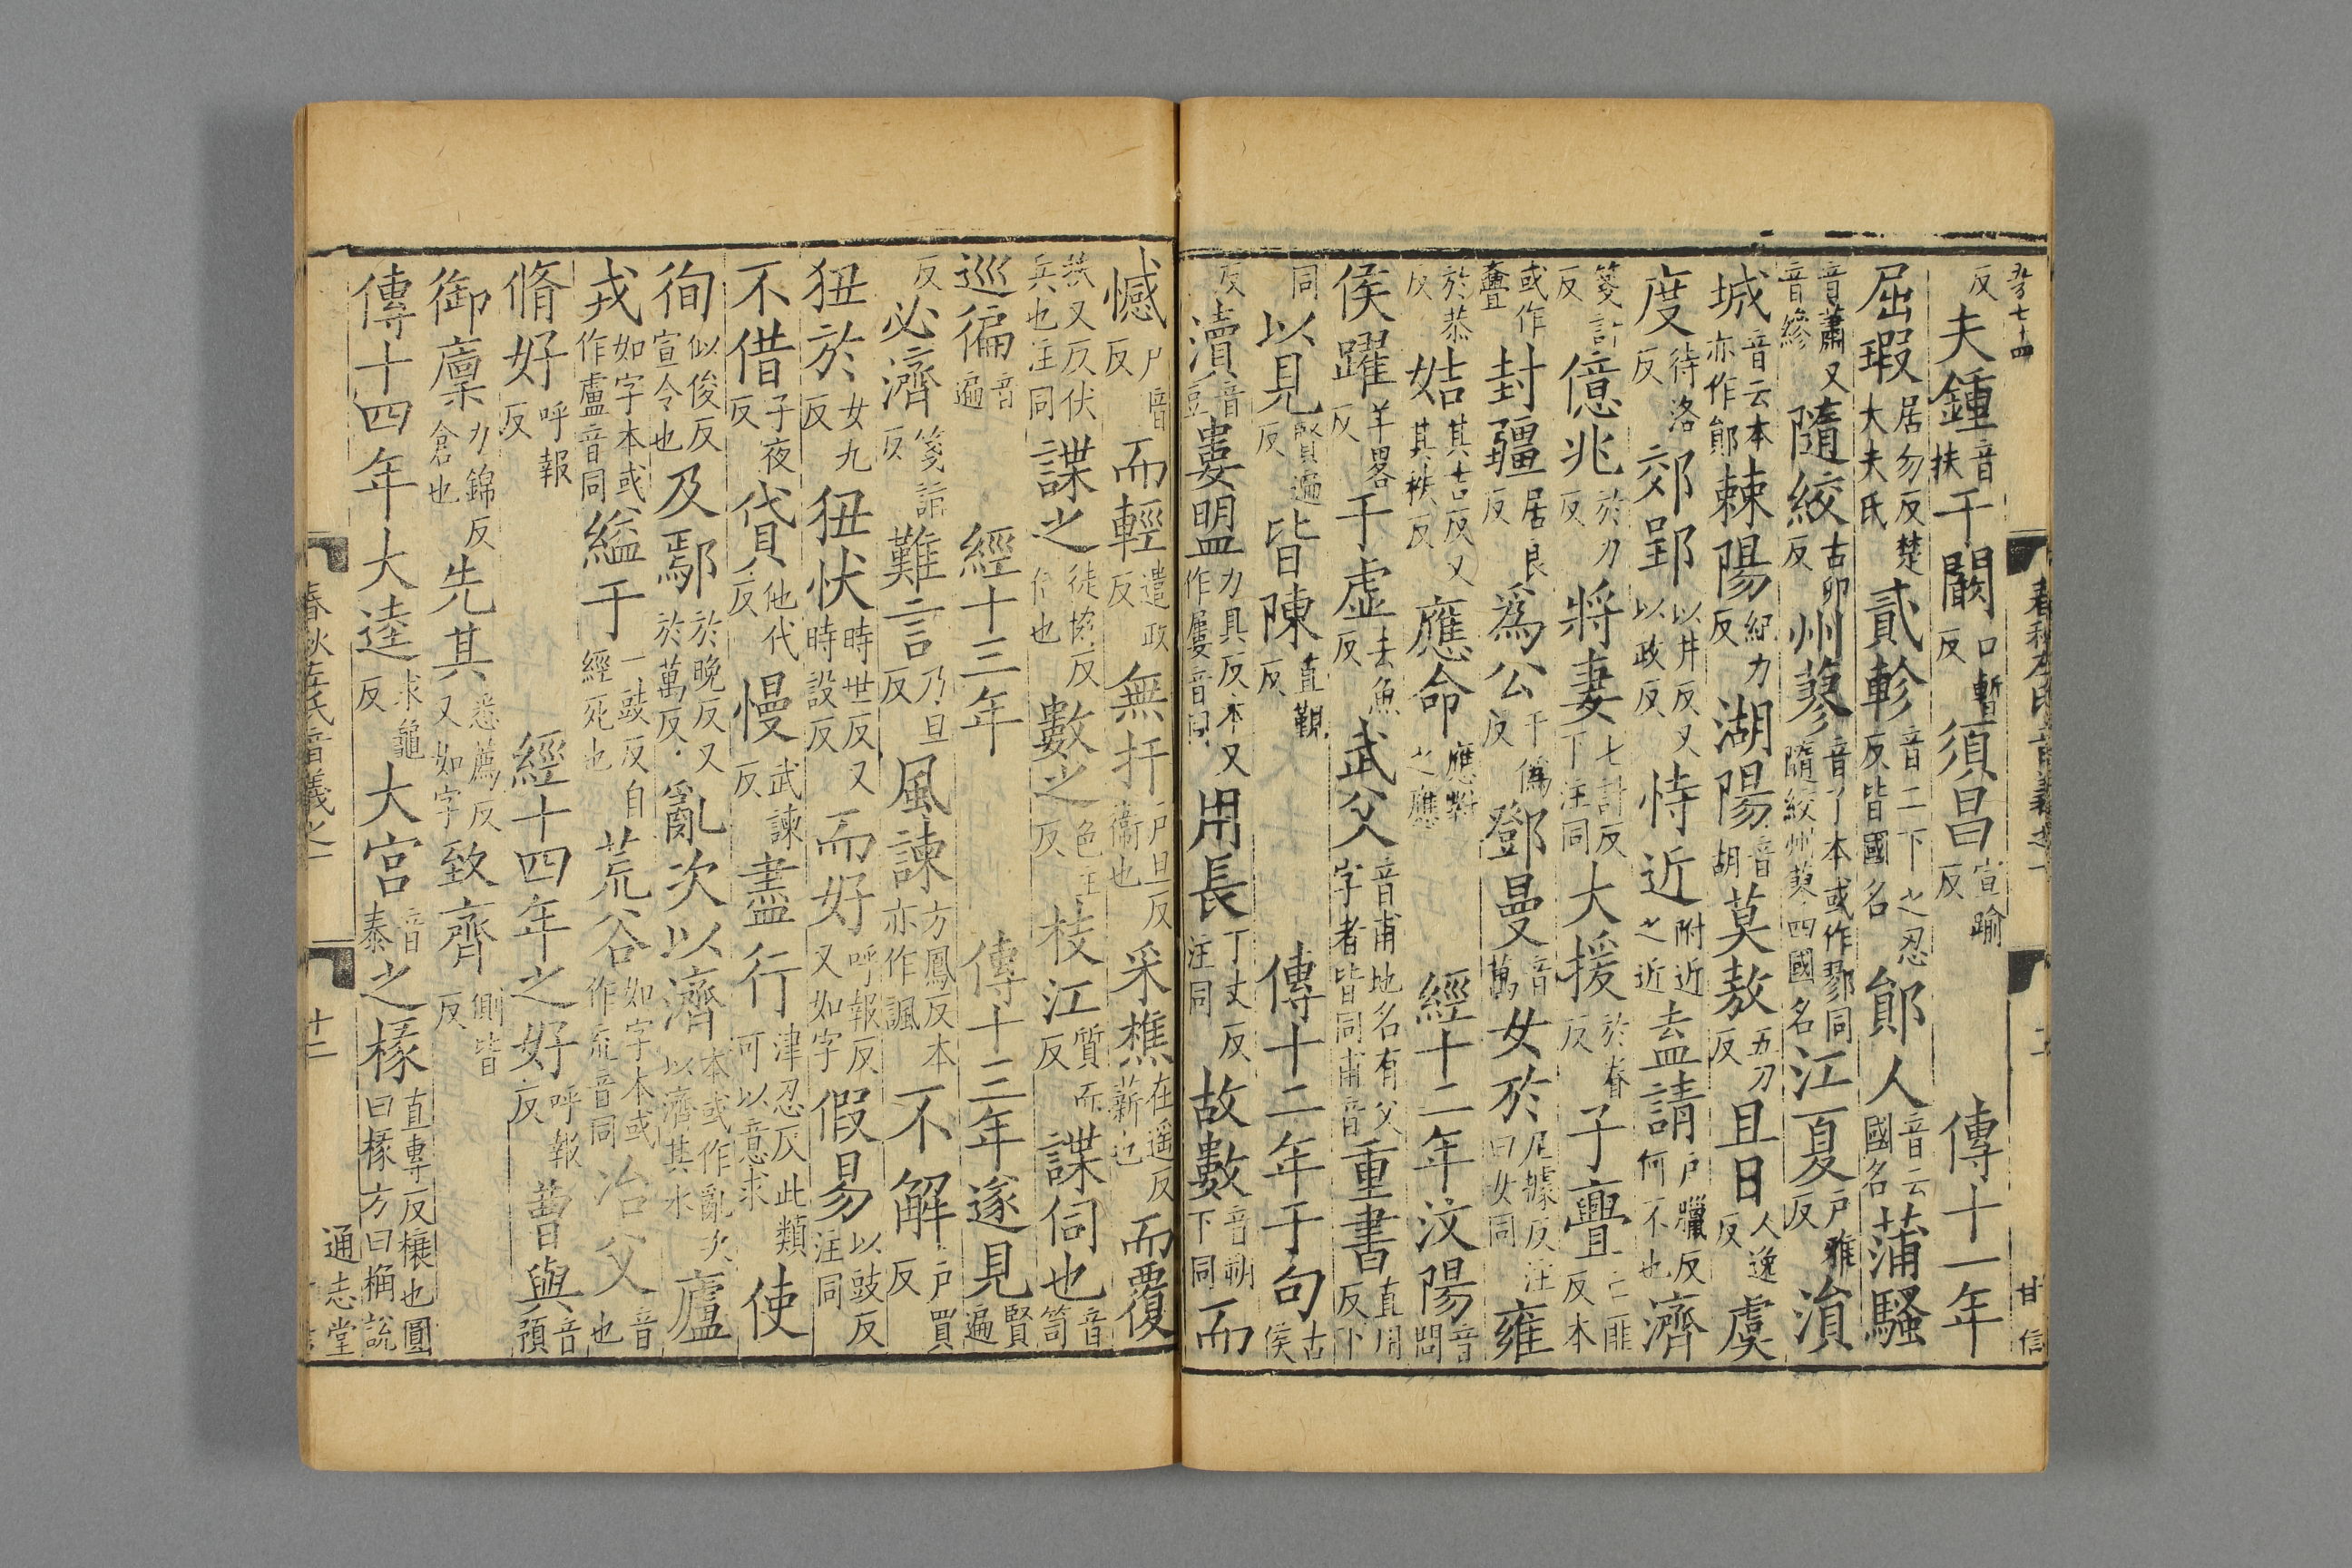 叅七十四　春秋左氏音義之一　甘信
反夫鍾音扶于闞口暫反須昌宣踰反　傳十一年
屈瑕居勿反楚大夫氏貳軫音二下之忍反皆國名鄖人音云國名蒲騷
音蕭又音縿隨絞古卯反州蓼音了本或作鄝同隨絞州蓼四國名江夏戶雅反湏
城音云本亦作鄖棘陽紀力反湖陽音胡莫敖五刀反且日人逸反虞
度待洛反郊郢以井反又以政反恃近附近之近盍請戶臘反何不也濟
箋計反億兆於力反將妻七計反下注同大援於眷反子亹亡匪反本
或作斖封疆居良反爲公于僞反鄧曼音萬女於尼據反注曰女同雍
於恭反姞其吉反又其秩反應命應對之應　經十二年汶陽音問
侯躍羊畧反于虛去魚反武父音甫地名有父字者皆同甫音重書直用反下
同以見賢遍反皆陳直覲反　傳十二年于句古侯
反瀆音豆婁盟力具反本又作屢音同用長丁丈反注同故數音朔下同而
憾戶暗反而輕遣政反無扞戶旦反衞也采樵在遥反薪也而覆
扶又反伏兵也注同諜之徒協反伺也數之色主反枝江質而反諜伺也音笥
巡徧音遍　經十三年　傳十三年遂見賢遍
反必濟箋詣反難言乃旦反風諫方鳳反本亦作諷不解戶買反
狃於女九反狃忕時世反又時設反而好呼報反又如字假易以豉反注同
不借子夜反貸反他代慢武諫反盡行津忍反此類可以意求使
徇似俊反宣令也及鄢於晚反又於萬反亂次以濟本或作亂次以濟其水廬
戎如字本或作盧音同縊于一豉反自經死也荒谷如字本或作㡃音同冶父音也
脩好呼報反　經十四年之好呼報反曹與音預
御廩力錦反倉也先其悉薦反又如字致齊側皆反
傳十四年大逵求龜反大宮音泰之椽直專反榱也圓曰椽方曰桷說
春秋左氏音義之一　十二　通志堂